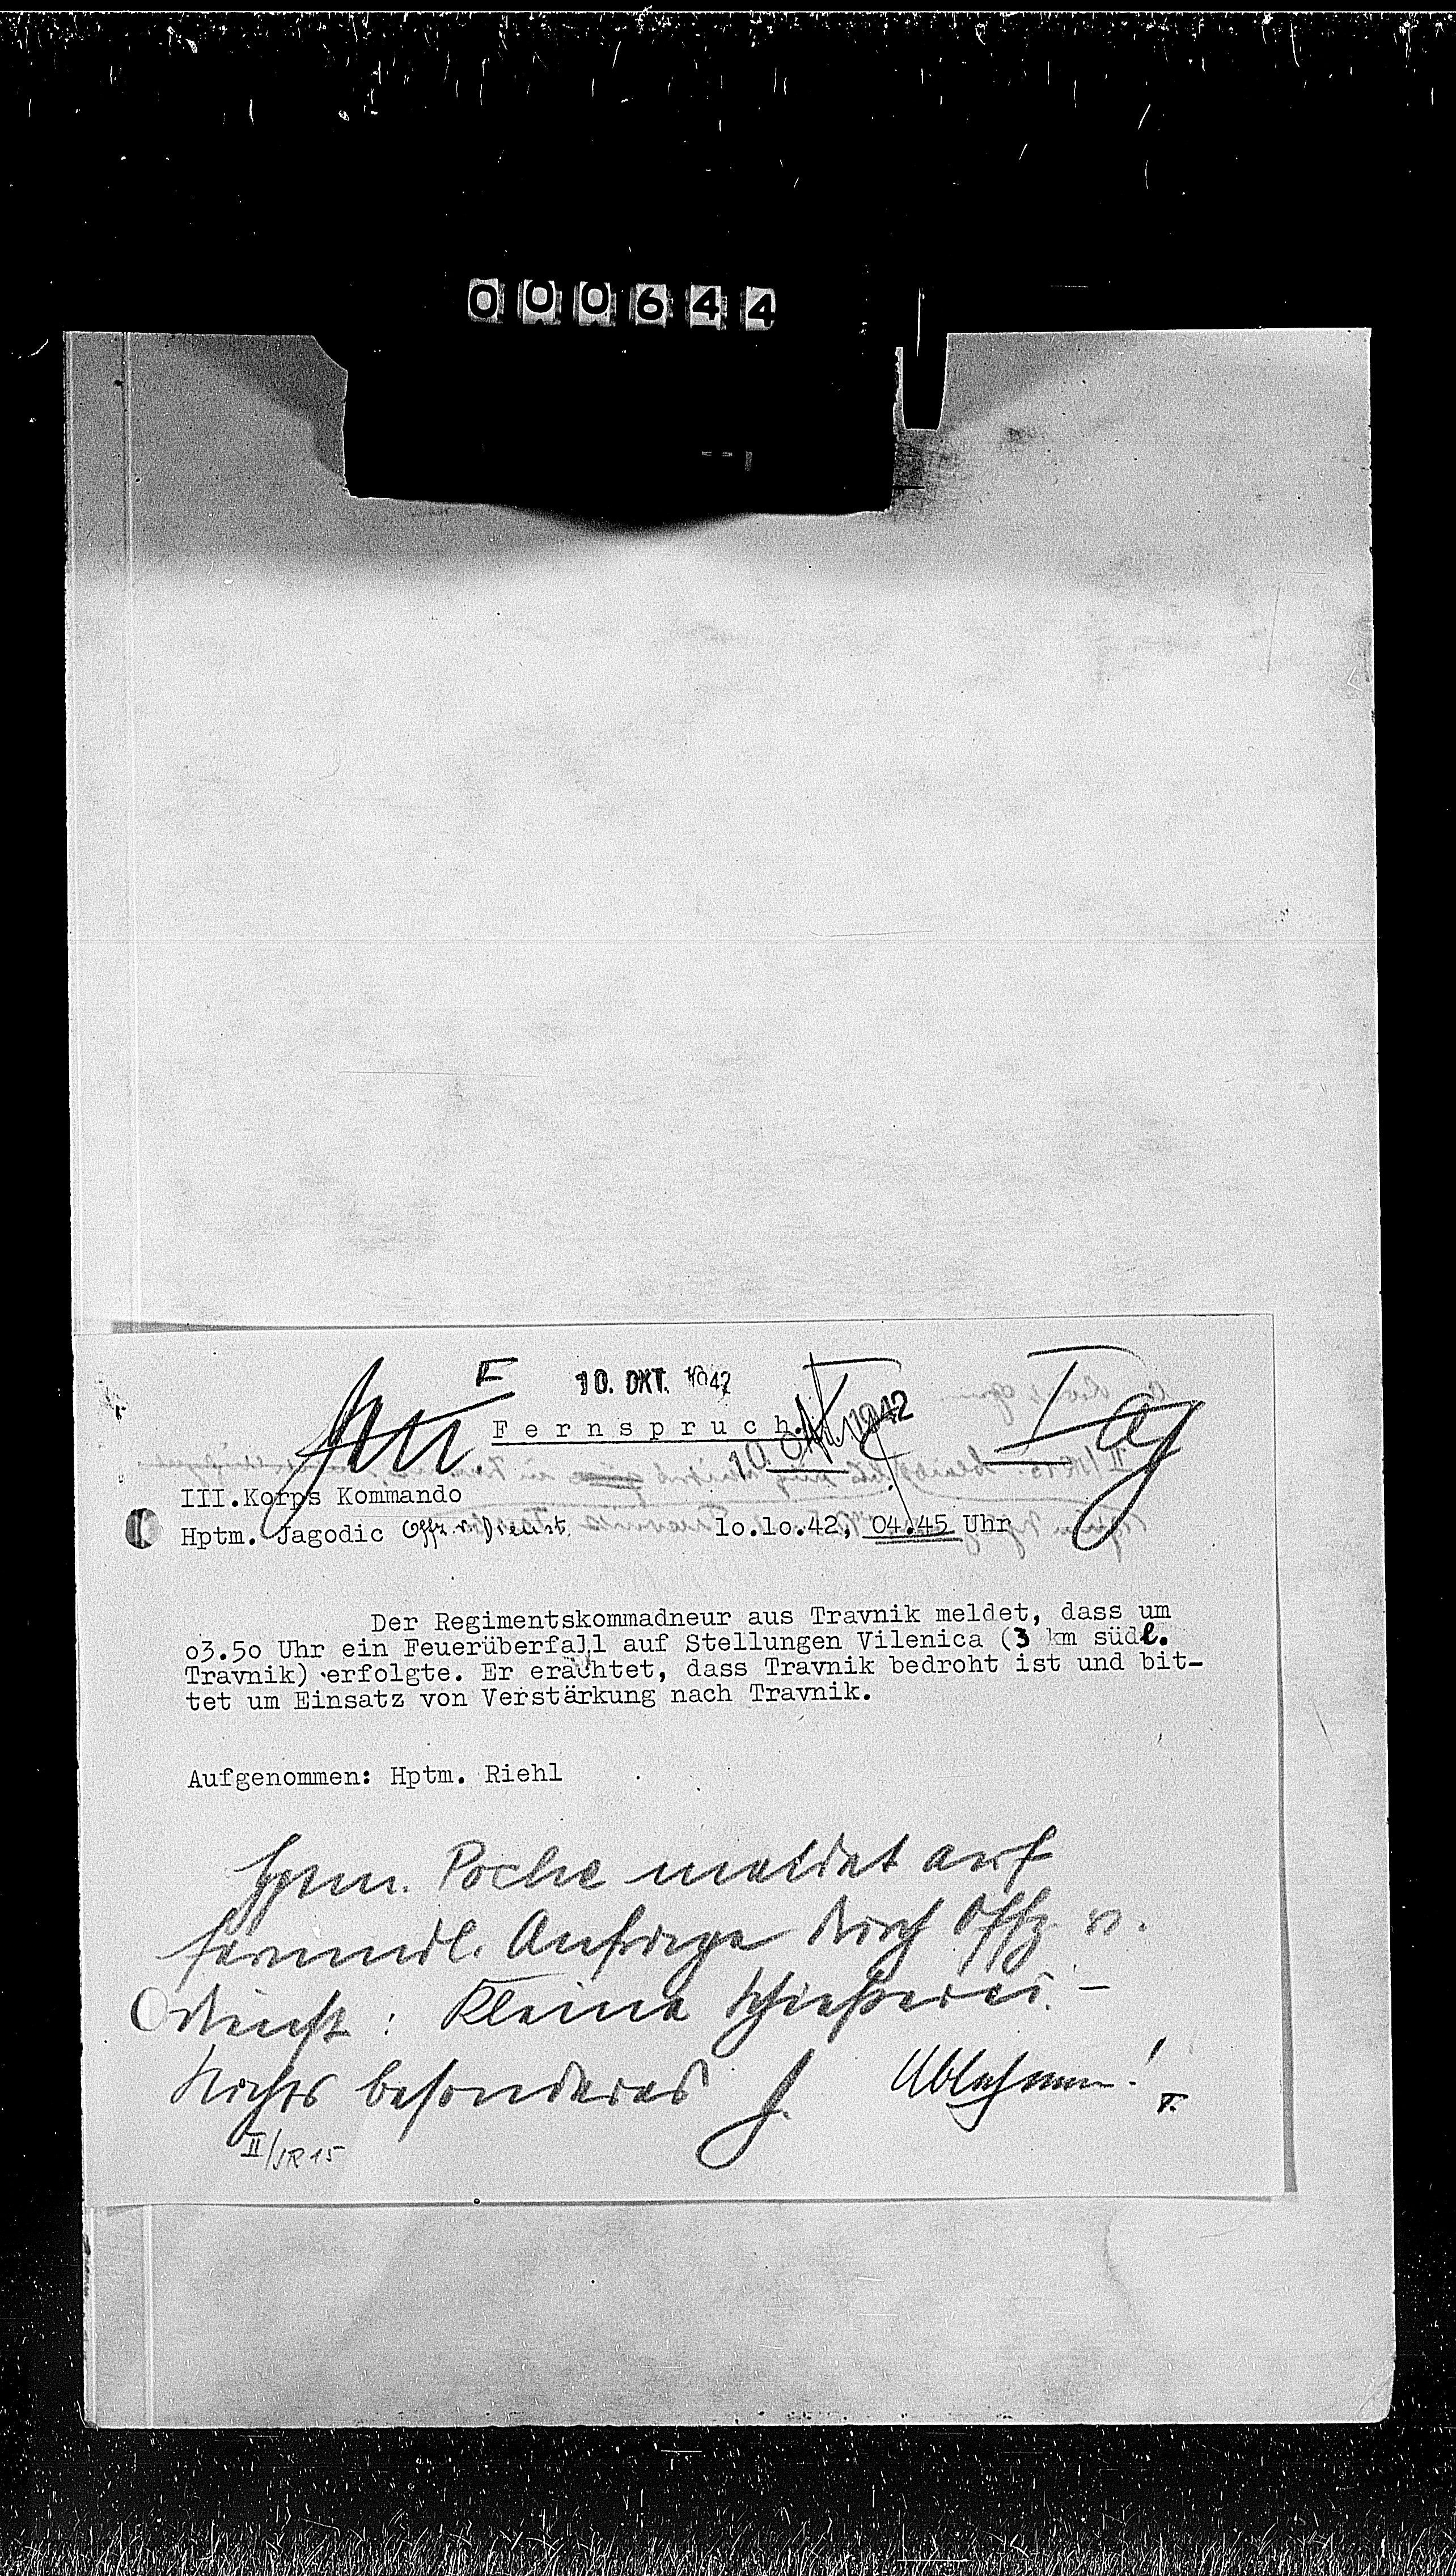 000644
10. OKT. 1942
Fernspruch.
10. OKT. 1942
Ia
III.Korps Kommando
Hptm. Jagodic Offz. v. Dienst. 1o.1o.42, 04.45 Uhr
Der Regimentskommadneur aus Travnik meldet, dass um
o3.5o Uhr ein Feuerüberfall auf Stellungen Vilenica (3 km südl.
Travnik) erfolgte. Er erachtet, dass Travnik bedroht ist und bit-
tet um Einsatz von Verstärkung nach Travnik.
Aufgenommen: Hptm. Riehl
Hptm. Poche meldet auf
fernmdl. Anfrage durch Offz. v.
Dienst: Kleine Schießerei. –
Nichts besonderes Ablehnen!
II/JR 15